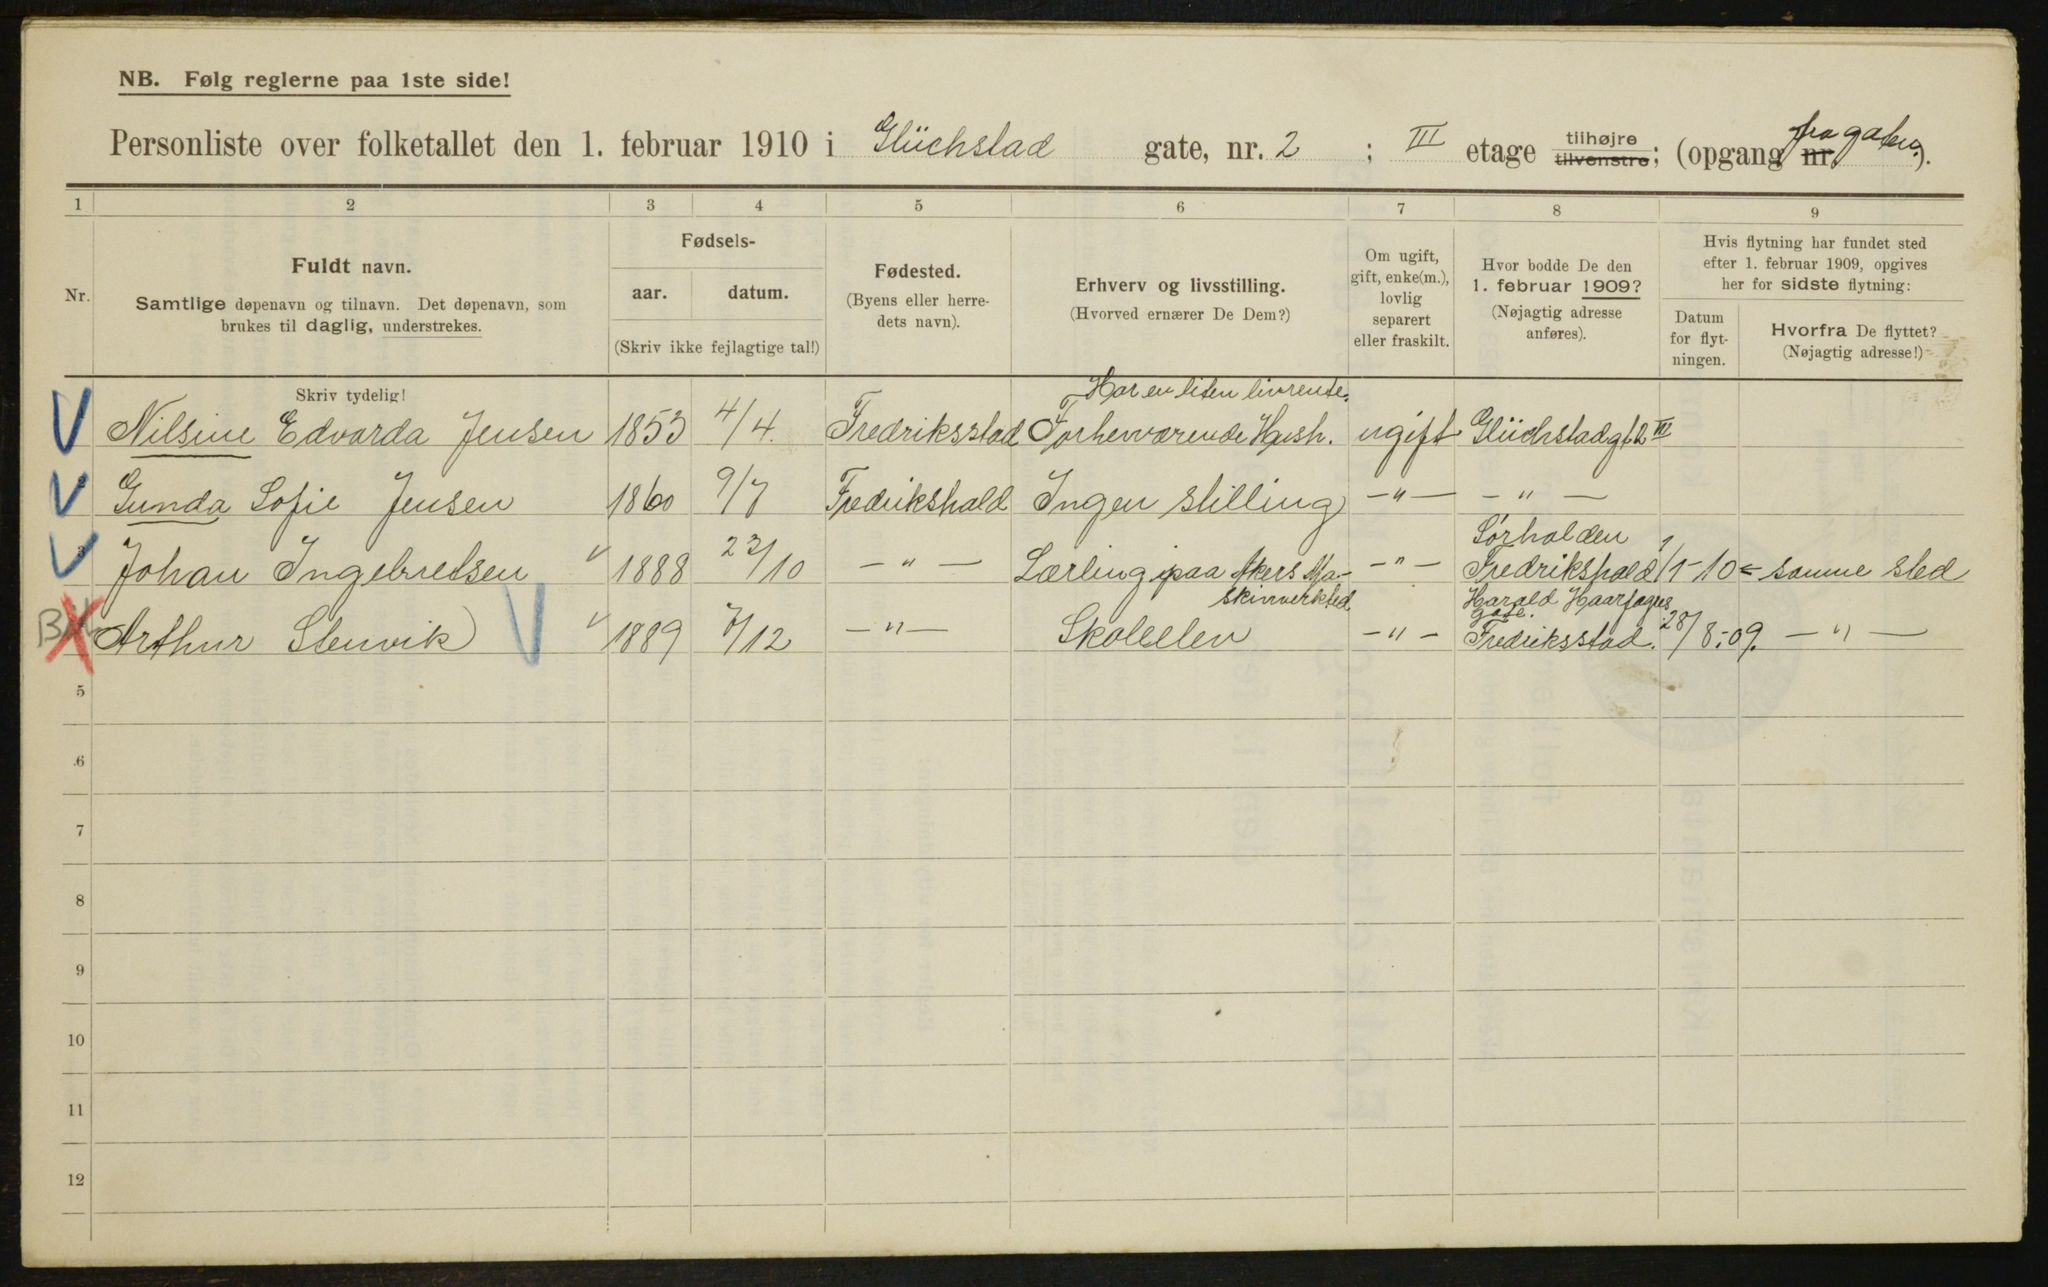 NB. Følg reglerne paa 1ste side!
Personliste over folketallet den 1. februar 1910 i Glüchstad gate, nr. 2 ; III etage tilhøjre tilvenstre; (opgang nr. fra gaten.).
1 2 3 4 5 6 7 8 9
Nr.
Fuldt navn.
Samtlige døpenavn og tilnavn. Det døpenavn, som
brukes til daglig, understrekes.
Skriv tydelig!
Fødsels-
aar. datum.
(Skriv ikke fejlagtige tal!)
Fødested.
(Byens eller herre-
dets navn).
Erhverv og livsstilling.
(Hvorved ernærer De Dem?)
Om ugift,
gift, enke(m.),
lovlig
separert
eller fraskilt.
Hvor bodde De den
1. februar 1909?
(Nøjagtig adresse
anføres).
Hvis flytning har fundet sted
efter 1. februar 1909, opgives
her for sidste flytning:
Datum
for flyt-
ningen.
Hvorfra De flyttet?
(Nøjagtig adresse!)
Har en liten livrente.
Nilsine Edvarda Jensen 1853 4/4. Fredriksstad Forhenværende Hush. ugift Glüchstadgt. 2 III
Gunda Sofie Jensen 1860 9/7 Fredrikshald Ingen stilling —"— —"—
Sørhalden
3 Johan Ingebretsen 1888 23/10 —"— Lærling paa Akers Ma- —"— Fredrikshald 1/1-10 samme sted
skinverksted.
Harald Haarfagres
gate.
Arthur Stenvik 1889 7/12 —"— Skoleelev —"— Fredriksstad. 28/8-09. —"—
5
6
7
8
9
10
11
12